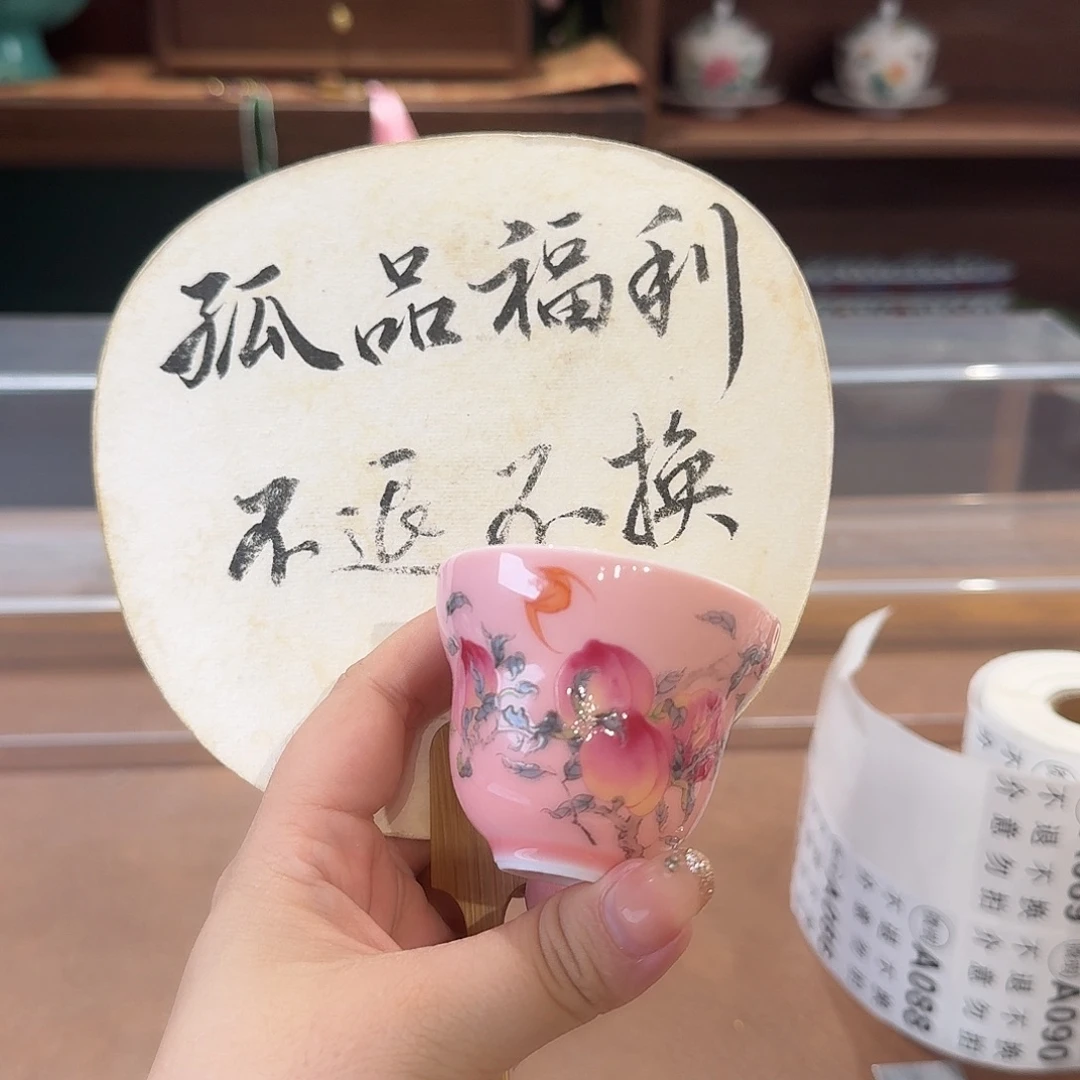 孤品福利
不退不换
不退不换
介意勿拍
A088
不退不换
介意勿拍
A090
不退不换
介意勿拍